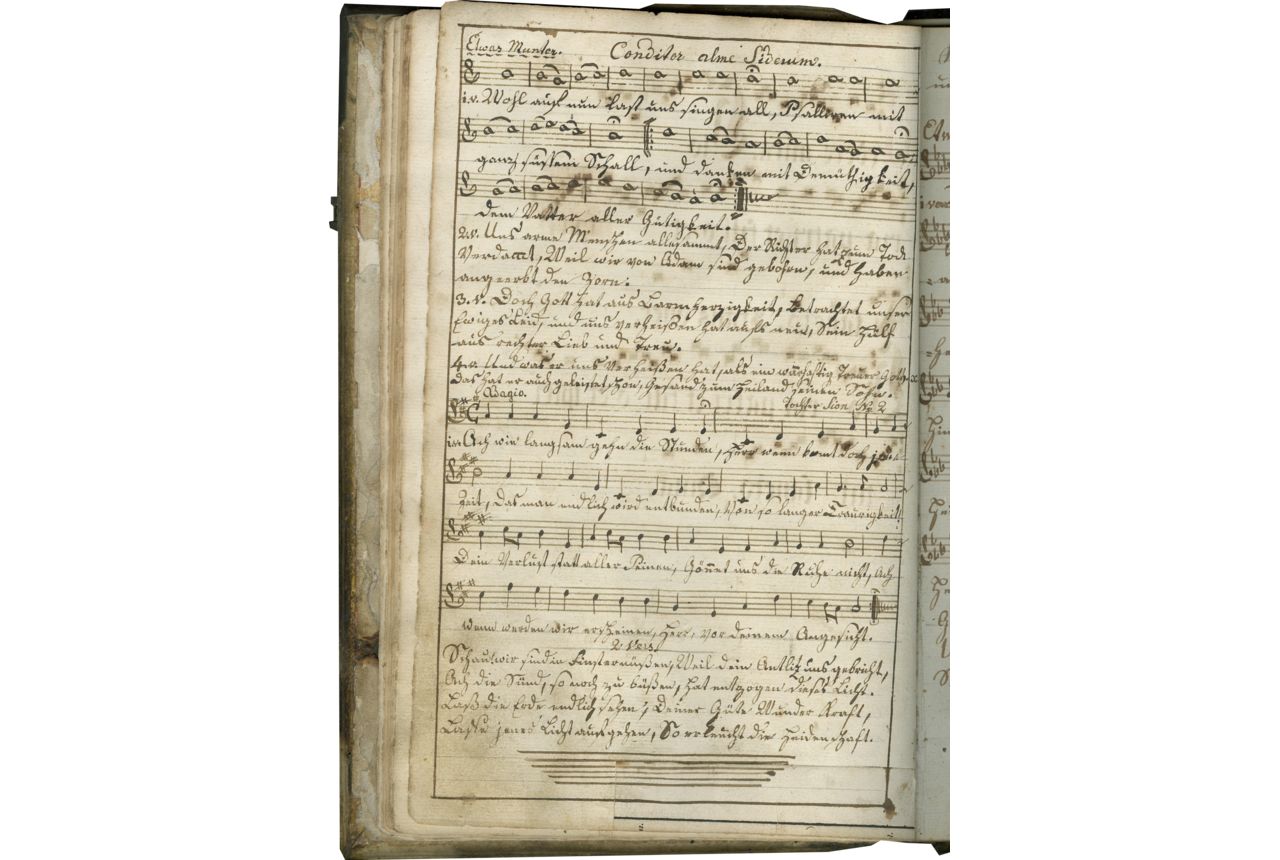 Etwas Munter. Conditor alme Siderum.
1.v. Wohl auf nun last uns singen all, Psalliren mit
ganz süssem Schall, und danken mit Demüthigkeit,
dem Vatter aller Gütigkeit.
2.v. Uns arme Menschen allesammt, Der Richter hat zum Tod
Verdamt, Weil wir von Adam sind gebohrn, und haben
angeerbt den Zorn.
3.v. Doch Gott hat aus Barmherzigkeit, betrachtet unser
Ewiges Leid, und uns verheißen hat aufs neu, Sein Hülf
aus rechter Lieb und Treu.
4.v. Und was er uns Verheißen hat, als ein wahrhaftig Treuer Gott,
das hat er auch geleistet schon, Gesand zum Heiland seinen Sohn.
Adagio. Tochter Sion No 2
1.v. Ach wie langsam gehn die Stunden, Herr wenn komt doch jene
Zeit, das man endlich wird entbunden, Von so langer Traurigkeit.
Dein Verlust statt aller Peinen, Gönnet uns die Ruhe nicht, Ach
wenn werden wir erscheinen, Herr, vor deinem Angesicht.
2 Vers.
Schau wir sind in Finsternüßen, Weil dein Antlitz uns gebricht,
Ach die Sünd, so noch zu büßen, hat entzogen dieses Licht.
Laß die Erde endlich sehen, Deiner Güte Wunder Kraft,
Lasse jenes Licht aufgehen, So erleucht die Heidenschaft.